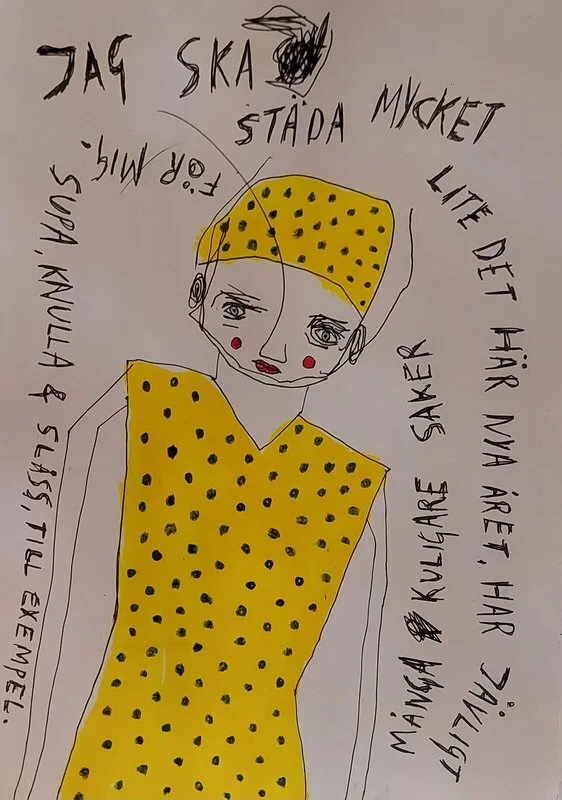 JAG SKA
STÄDA MYCKET
LITE DET HÄR NYA ÅRET, HAR JÄVLIGT
MÅNGA KULIGARE SAKER
FÖR MIG.
SUPA, KNULLA & SLÅSS, TILL EXEMPEL.